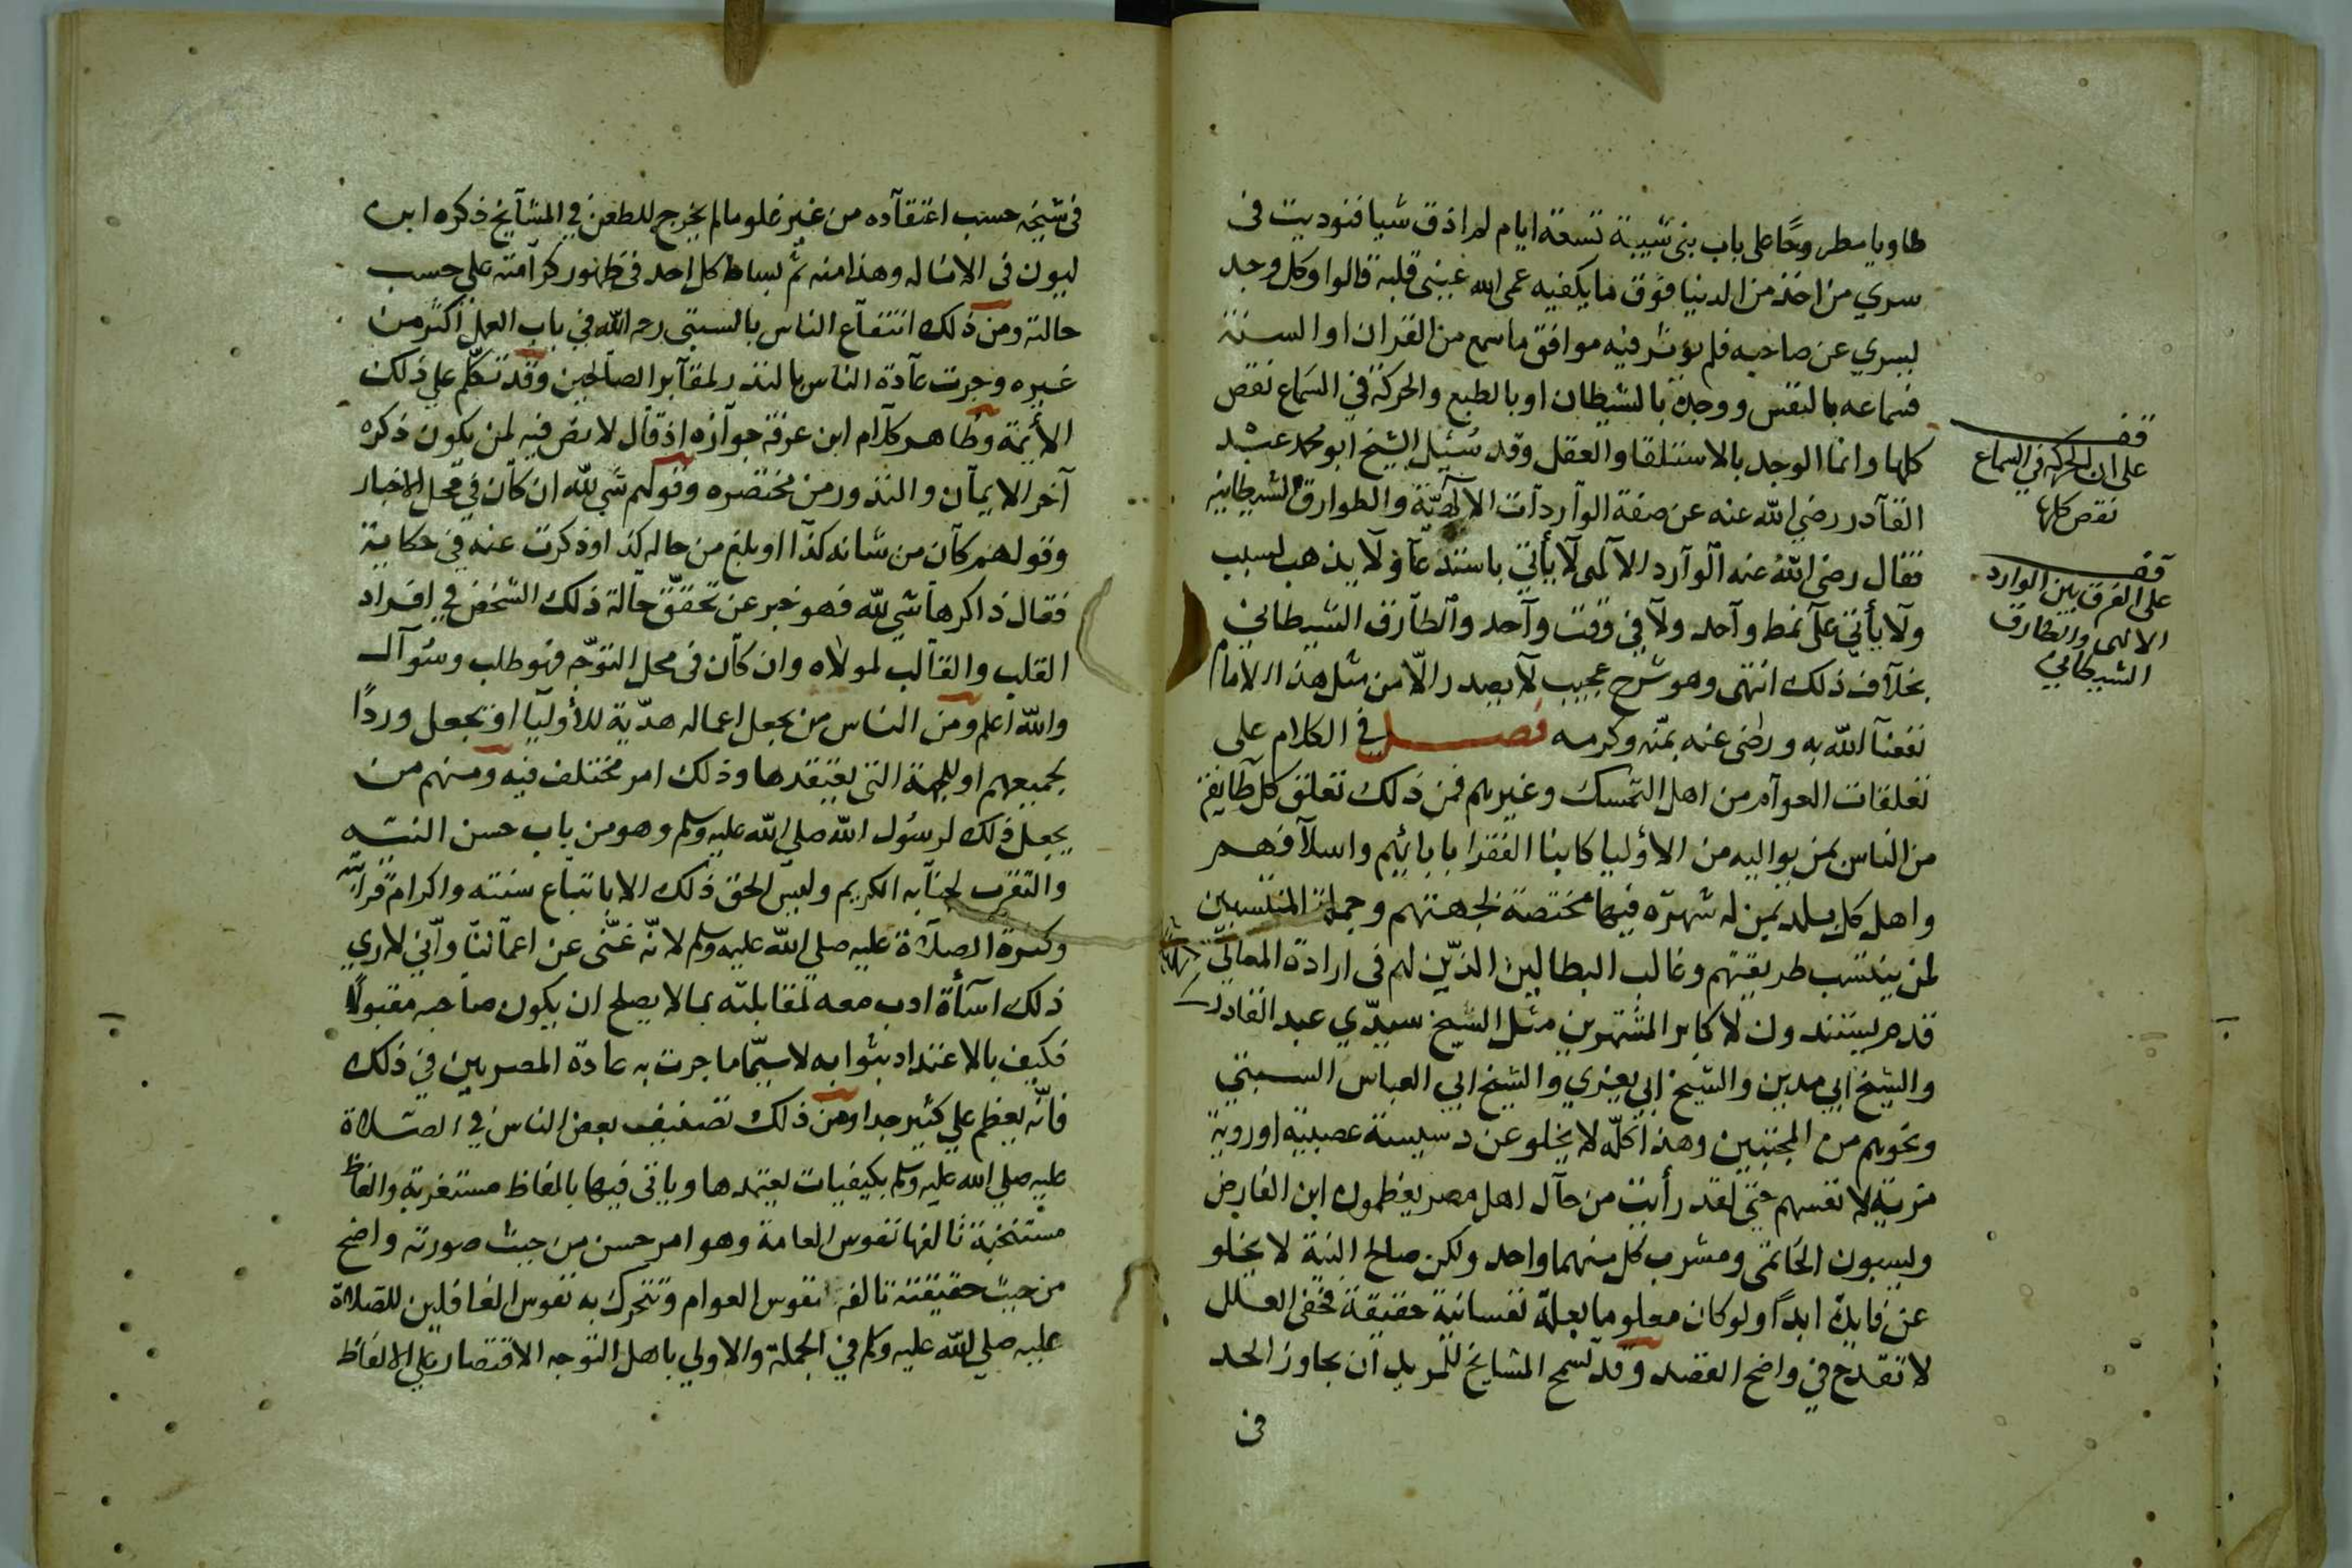 طاويا مطروحًا على باب بنى شيبة تسعة ايام لم اذق شيا فنوديت فى
سري من اخذ من الدنيا فوق ما يكفيه عمى الله عينى قلبه قالوا وكل وجد
يسري عن صاحبه فلم يوثر فيه موافق ما سمع من القران او السنة
فسماعه بالنفس ووجده بالشيطان او بالطبع والحركة في السماع نقص
كلها وانما الوجد بالاستلقا والعقل وقد سُئِل الشيخ ابو محمد عبد
القآدر رضي الله عنه عن صفة الوآردآت الالٓهيّة والطوارق الشيطانية
فقال رضى اللهُ عنه الوآرد الالٓهى لآ يأتي باستدعآ ولآ يذهب لسبب
ولآ يأتي علَى نمط وآحد ولآ في وقت وآحد والطآرق الشيطاني
بخلآف ذلك انتهى وهو شرح عجيب لآ يصدر الّا من مثل هذا الامام
نفعنآ الله به ورضى عنه بمنّه وكرمه فصل في الكلام على
تعلقات العوآم من اهل التمسك وغيرهم فمن ذلك تعلق كل طآيفة
من الناس بمن يواليه من الاوليا كابنا الفقرا بابائهم واسلآفهم
واهل كل بلد بمن له شهرَة فيها مختصة بجهتهم وجملة المنتسبين
لمن ينتسب طريقتهم وغالب البطالين الذّين لهم فى ارادة المعالي
قدم يستندون لاكابر المشتهرين مثل الشيخ سيدّي عبد القادر
والشيخ ابي مدين والشيخ ابي يعزي والشيخ ابي العباس السبتي
ونحوهم من المجنبين وهذا كلّه لا يخلو عن دسيسة عصبية او روية
مزية لانفسهم حتى لقد رأيت من حآل اهل مصر يعظمون ابن الفارض
ويسبون الحَاتمى ومشرب كل منهما واحد ولكن صالح النية لا يخلو
عن فايدة ابداً ولو كان معلوما بعلة نفسانية حقيقة فخفى العلل
لا تقدح في واضح القصد وقد تسمح المشايخ للمريد ان يجاوز الحد
فى
قف
على ان الحركة في السماع
نقص كلها
قف
على الفرق بين الوارد
الالهى والطارق
الشيطاني
فى شيخه حسب اعتقآده من غير غلو ما لم يخرج للطعن في المشآيخ ذكره ابن
ليون فى الانالة وهذا منه ثم بساط كل احد فى ظهور كرآمته على حسب
حالته ومن ذلك انتفآع الناس بالسبتى رحمه الله في باب العمل اكثر من
غيره وجرت عآدة الناس بالنذر لمقآبر الصآلحين وقد تكلّم علي ذلك
الأيمة وظاهر كلآم ابن عرفة جوآزه اذ قآل لا نص فيه لمن يكون ذكره
آخر الايمآن والنذور من مختصره وقولهم شَي لله ان كآن في محل الاخبار
وقولهم كآن من شانه كذآ او بلغ من حاله كذا وذكرت عنه في حكاية
فقال ذاكرهآ شي لله فهو خبر عن تحقّق حآلة ذلك الشخص في افراد
القلب والقآلب لمولاه وان كآن فى محل التوجّه فهو طلب وسُوآل
والله اعلم ومن الناس من يجعل اعماله هدّية للأوليآ او يجعل وردًا
لجميعهم او للجهة التي يعتقدها وذلك امر مختلف فيه ومنهم من
يجعل ذلك لرسُول الله صلي الله عليه وسلم وهو من باب حسن النية
والتقرب لجنآبه الكريم وليس لحق ذلك الا باتبآع سنته واكرام قرابته
وكثرة الصلآة عليه صلي الله عليه وسلم لانّه غنّى عن اعمآلنآ وانّي لا ري
ذلك اسآأة ادب معه لمقابلته بما لا يصلح ان يكون صآحبه مقبولًا
فكيف بالاعتداد بثوابه لا سيّما ما جرت به عادة المصريين في ذلك
فانّه يعظم علي كثير جدا ومن ذلك تصنيف بعض الناس في الصلاة
عليه صلي الله عليه وسلم بكيفيات يعتمدها وياتى فيها بالفاظ مستغربة والفاظ
مستخبة تالفها نفوس العامة وهو امر حسن من حيث صورته واضح
من حيث حقيقته تالفه نفوس العوام وتتحرك به نفوس الغافلين للصلاة
عليه صلي الله عليه وسلم في الجملة والاولي باهل التوجه الاقتصار علي الالفاظ